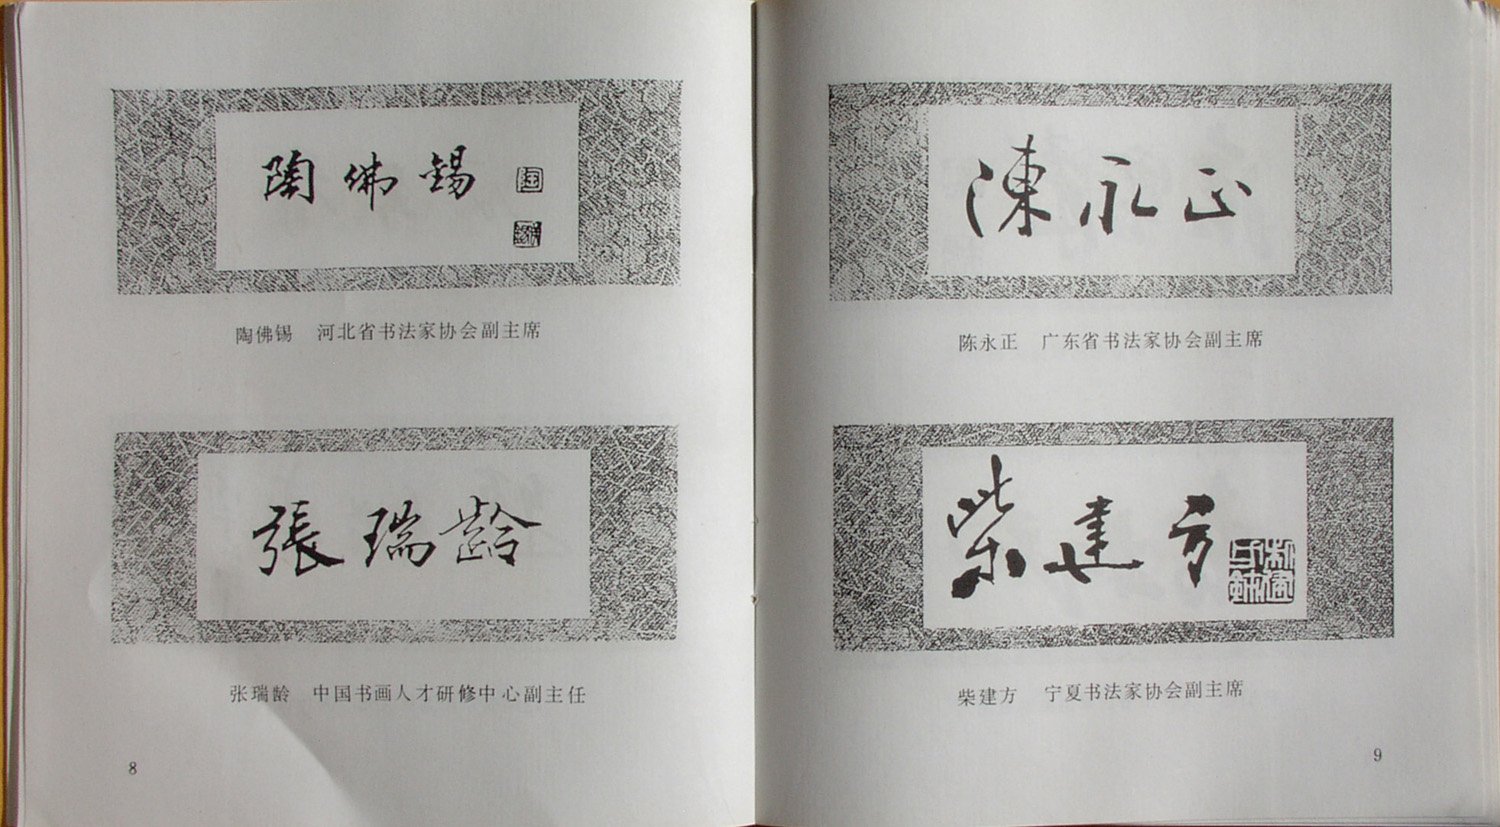 陶佛錫
陶佛锡 河北省书法家协会副主席
張瑞齡
张瑞龄 中国书画人才研修中心副主任
8
陳永正
陈永正 广东省书法家协会副主席
柴建方
柴建方 宁夏书法家协会副主席
9